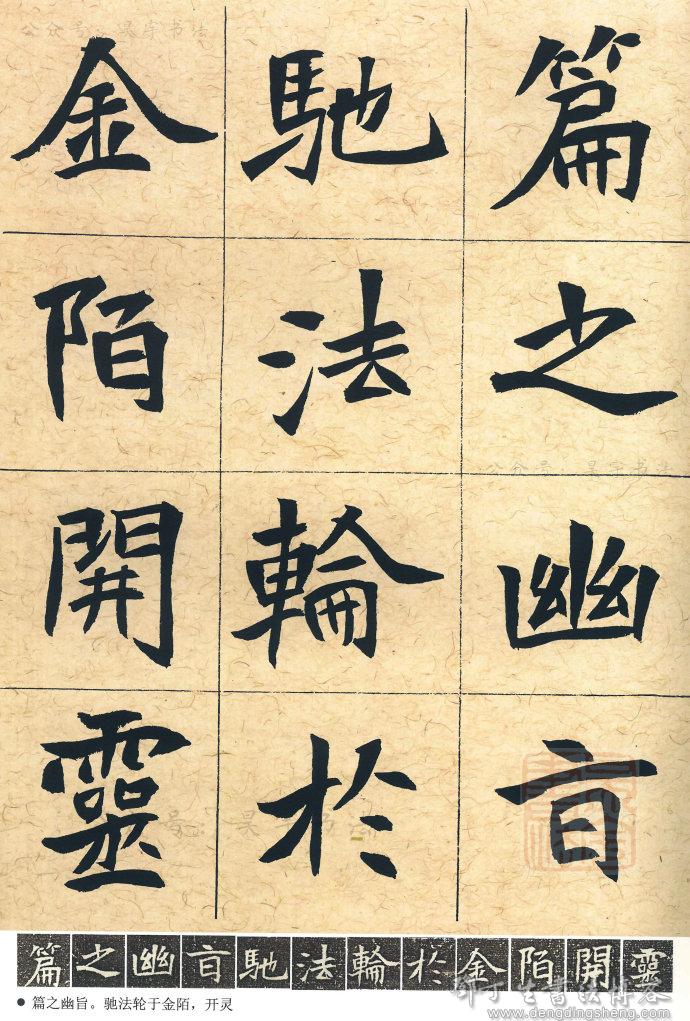 篇之幽旨
馳法輪於
金陌開靈
篇之幽旨馳法輪於金陌開靈
● 篇之幽旨。驰法轮于金陌，开灵
www.dengdingsheng.com